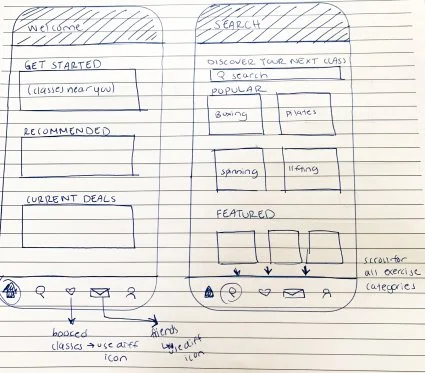 Welcome
GET STARTED
(classes near you)
RECOMMENDED
CURRENT DEALS
SEARCH
DISCOVER YOUR NEXT CLASS
search
POPULAR
Boxing
pilates
spinning
lifting
FEATURED
scroll for
all exercise
categories
booked
classes → use diff
icon
friends
use diff
icon